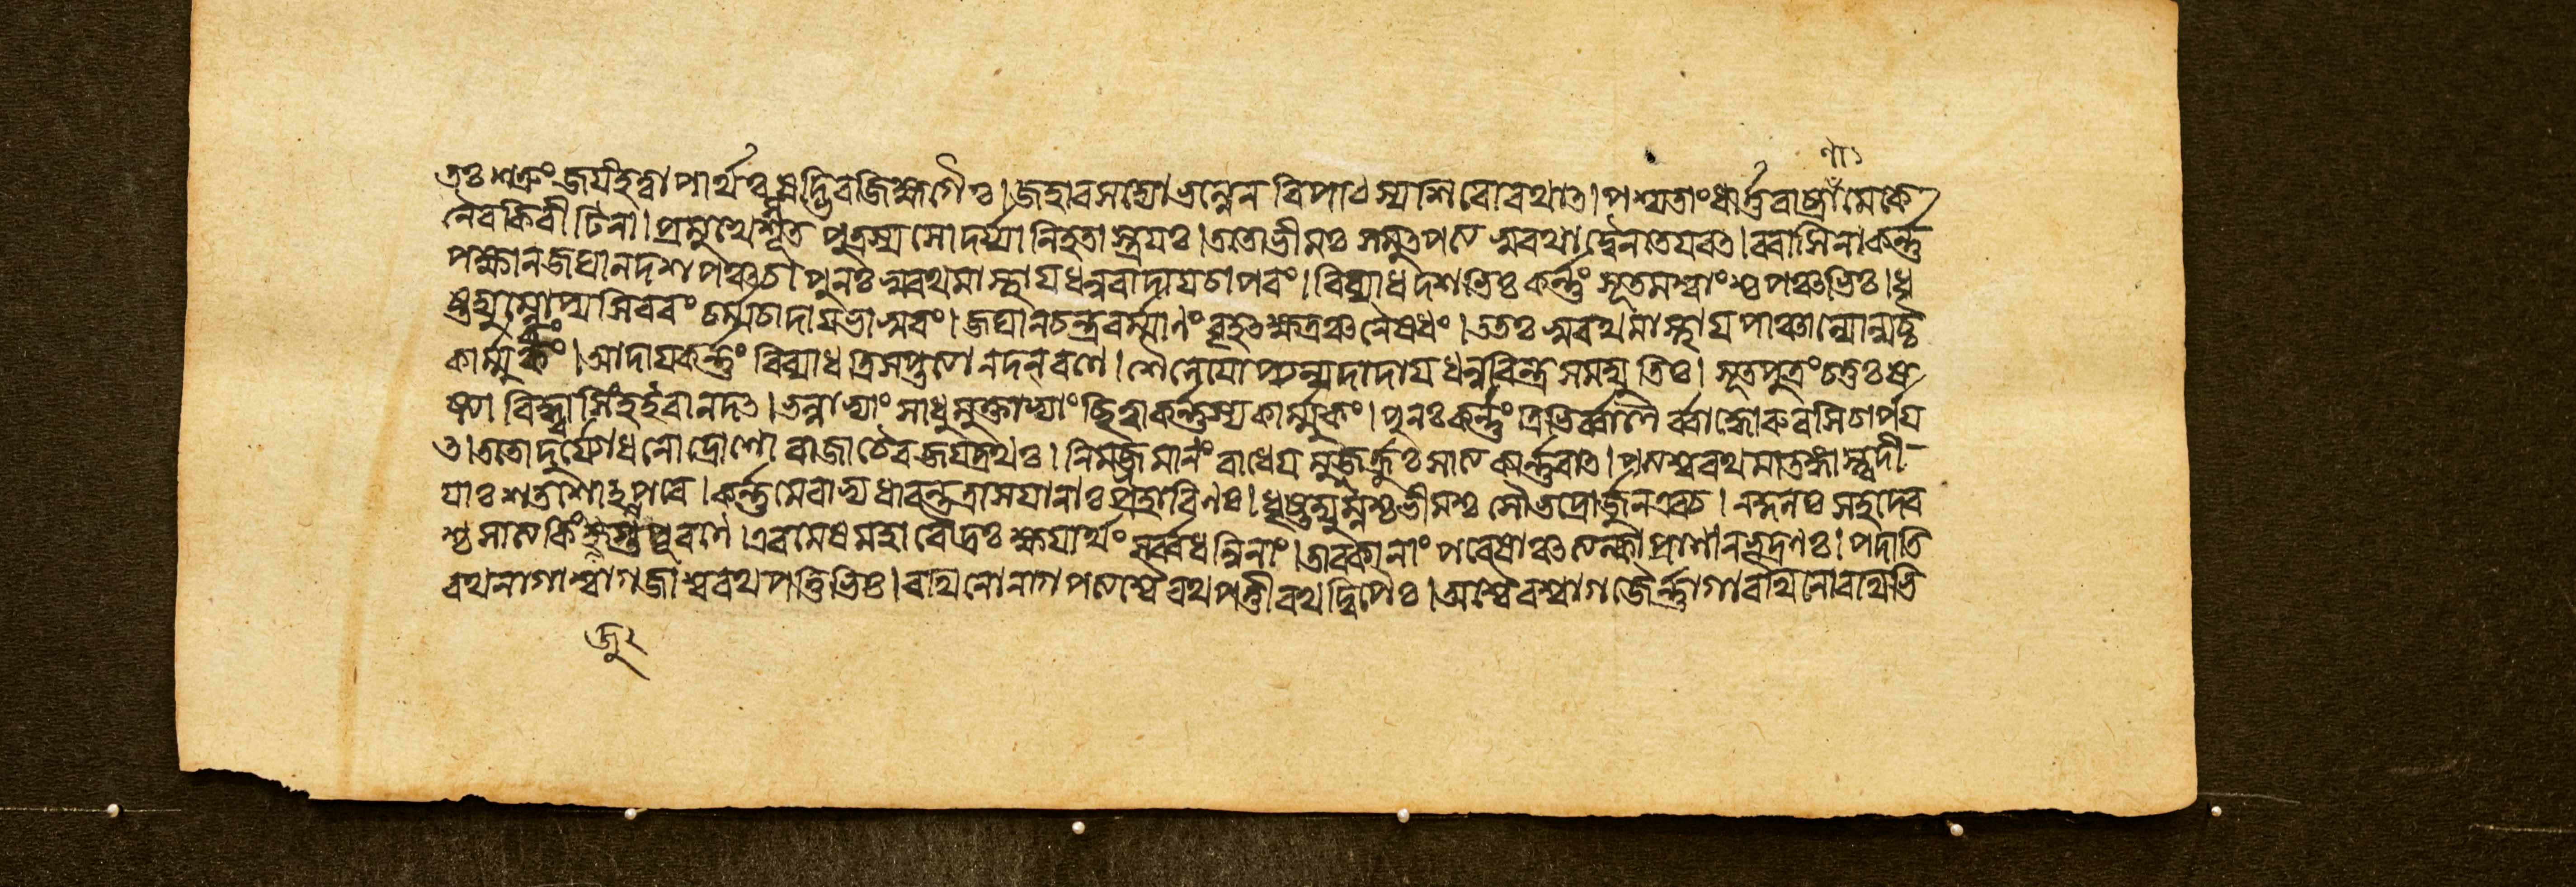 তঃ শত্রুংজয়ং হত্বা পার্থঃ ষড্ভিরজিহ্মগৈঃ। জহার সদ্যো ভল্লেন বিপাটস্য শিরো রথাৎ। পশ্যতাং ধার্ত্তরাষ্ট্রাণামেকে
নৈব কিরীটিনা। প্রমুখে সূতপুত্রস্য সোদর্য্যা নিহতাস্ত্রয়ঃ। ততো ভীমঃ সমুৎপত্য স্বরথাদ্বৈনতেয়বৎ। বরাসিনা কর্ণ্ণ
পক্ষান জঘান দশ পঞ্চ চ। পুনঃ স্বরথমাস্থায় ধনুরাদায় চাপরং। বিব্যাধ দশভিঃ কর্ণ্ণং সূতমশ্বাংশ্চ পঞ্চভিঃ। ধৃ
ষ্টদ্যুম্নোপ্যসিবরং চর্ম্ম চাদায় ভাস্বরং। জঘান চন্দ্রবর্ম্মাণং বৃহৎক্ষত্রঞ্চ নৈষধং। ততঃ স্বরথমাস্থায় পাঞ্চাল্যোন্যচ্চ
কার্ম্মুকং। আদায় কর্ণ্ণং বিব্যাধ ত্রিসপ্তত্যা নদন্ রণে। শৈনেয়োপ্যন্যদাদায় ধনুরিন্দ্রসমদ্যুতিঃ। সূতপুত্রং চতুঃষ
ষ্ট্যা বিদ্ধ্বা সিংহ ইবানদৎ। ভল্লাভ্যাং সাধুমুক্তাভ্যাং ছিত্বা কর্ণ্ণস্য কার্ম্মুকং। পুনঃ কর্ণ্ণং ত্রিভির্ব্বাণৈর্ব্বাহ্বোরুরসি চার্পয়
ৎ। ততো দুর্য্যোধনো দ্রোণো রাজা চৈব জয়দ্রথঃ। নিমজ্জমানং রাধেয়মুজ্জর্হ্রুঃ সাত্যকার্ণ্ণবাৎ। পত্যশ্বরথমাতঙ্গাস্ত্বদী
য়াঃ শতশোপরে। কর্ণ্ণমেবাভ্যধাবন্ত ত্রাসয়ানাঃ প্রহারিণঃ। ধৃষ্টদ্যুম্নশ্চ ভীমশ্চ সৌভদ্রোর্জুন এব চ। নকুলঃ সহদেব
শ্চ সাত্যকিং জুগুপূ রণে। এবমেষ মহারৌদ্রঃ ক্ষয়ার্থং সর্ব্বধন্বিনাং। তাবকানাং পরেষাঞ্চ ত্যক্ত্বা প্রাণানভূদ্রণঃ। পদাতি
রথনাগাশ্বা গজাশ্বরথপত্তিভিঃ। রথিনো নাগপত্যশ্বৈ রথপত্তী রথদ্বিপৈঃ। অশ্বৈরশ্বা গজৈর্ন্নাগা রথিনো রথিভি